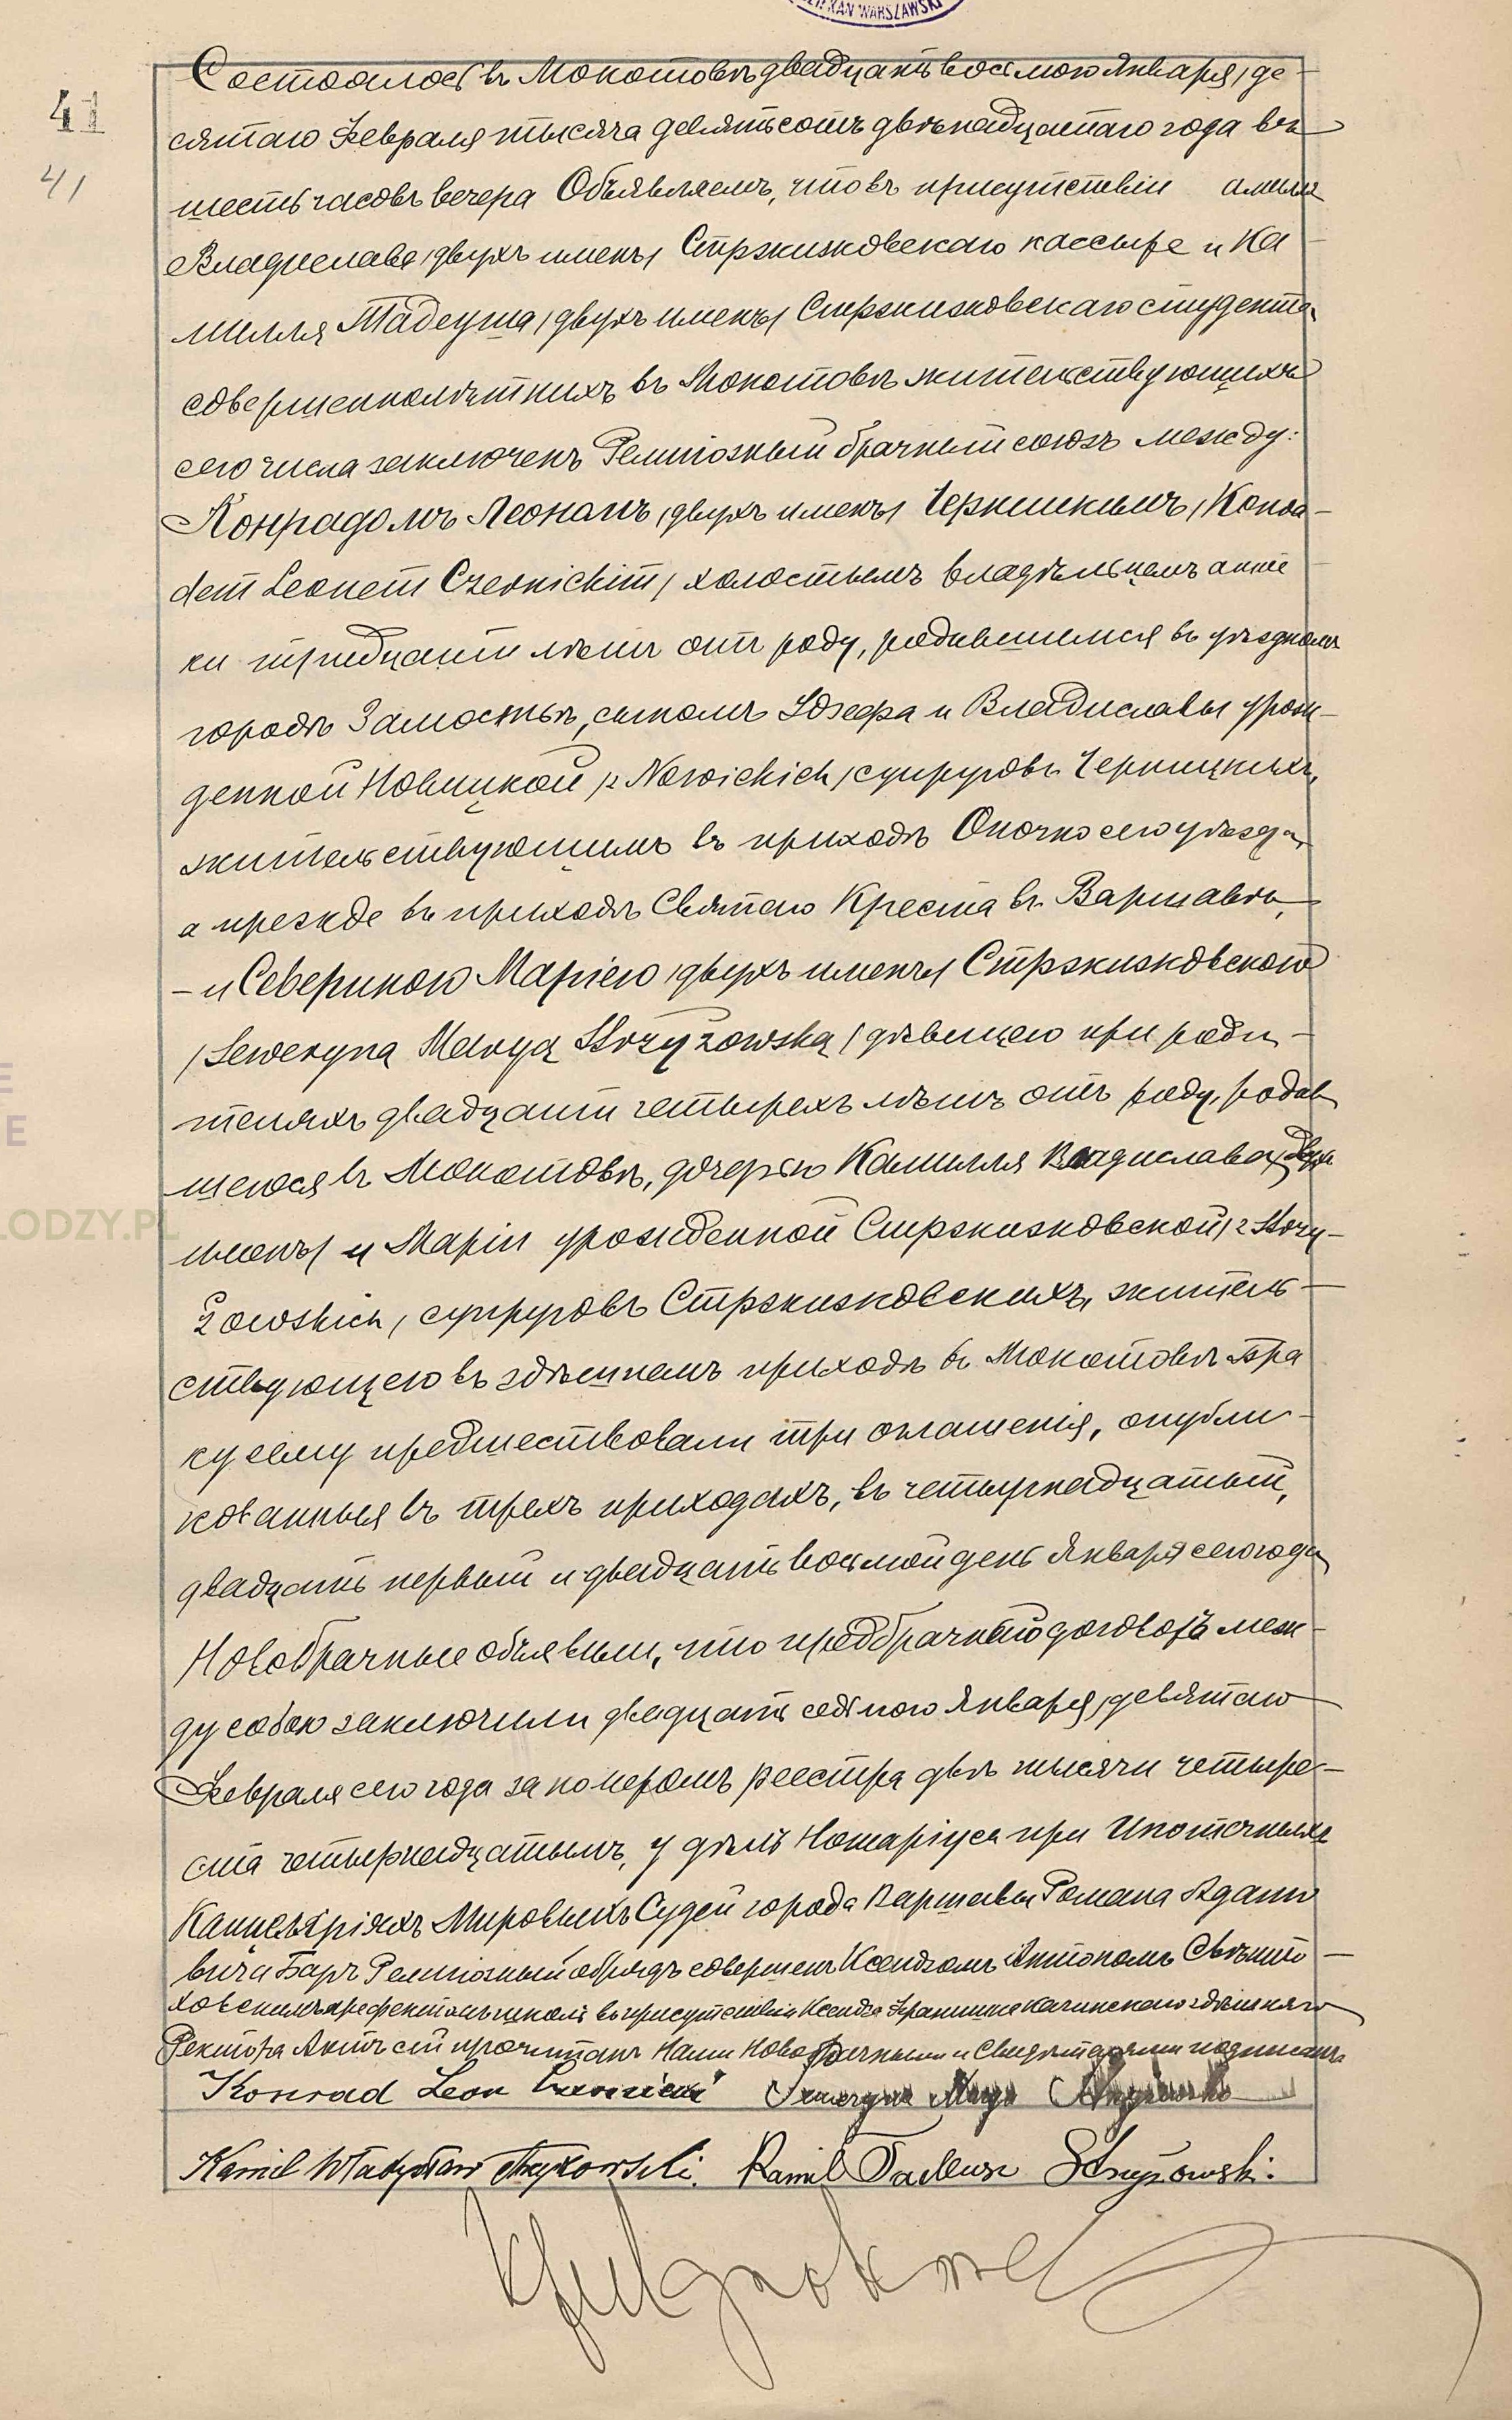 DZIEKAN WARSZAWSKI
41
41
Состоялось въ Мокотовѣ двадцать восьмого Января /де-
сятаго Февраля тысяча девятьсотъ двѣнадцатаго года въ
шесть часовъ вечера Объявляемъ, что въ присутствіи
Владислава /двухъ именъ/ Стржижовскаго кассира и Ка
милля Тадеуша /двухъ именъ/ Стржижовскаго студента,
совершеннолѣтнихъ въ Мокотовѣ жительствующихъ
сего числа заключенъ Религіозный брачный союзъ между:
Конрадомъ Леономъ /двухъ именъ/ Черницкимъ, /Konra-
dem Leonem Czernickim/ холостымъ владѣльцемъ апте
ки тридцати лѣтъ отъ роду, родившимся въ уѣздномъ
городѣ Замостьѣ, сыномъ Юзефа и Владиславы урож-
денной Новицкой /z Nowickich/ супруговъ Черницкихъ,
жительствующимъ въ приходѣ Опочно сего уѣзда,
а прежде въ приходѣ Святаго Креста въ Варшавѣ,
- и Севериною Маріею /двухъ именъ/ Стржижовскою
/Seweryną Maryą Strzyżowską/ дѣвицею при роди-
теляхъ двадцати четырехъ лѣтъ отъ роду, родив
шеюся въ Мокотовѣ, дочерью Камилля Владислава /двухъ
именъ/ и Маріи урожденной Стржижовской /z Strzy-
żowskich/ супруговъ Стржижовскихъ, житель-
ствующею въ здѣшнемъ приходѣ въ Мокотовѣ Бра
ку сему предшествовали три оглашенія, опубли-
кованныя въ трехъ приходахъ, въ четырнадцатый,
двадцать первый и двадцать восьмой день Января сего года
Новобрачные объявили, что предбрачный договоръ меж-
ду собою заключили двадцать седьмого Января /девятаго
Февраля сего года за номеромъ реестра двѣ тысячи четыре-
ста четырнадцатымъ, у дѣлъ Нотаріуса при Ипотечныхъ
Канцеляріяхъ Мировыхъ Судей города Варшавы Романа Адамо
вича Баръ Религіозный обрядъ совершенъ Ксендзомъ Антономъ
префектомъ школъ въ присутствіи Ксендза Франциска здѣшняго
Ректора Актъ сей прочитанъ Нами Новобрачными и Свидѣтелями подписанъ
Konrad Leon Czernicki Seweryna Marya Strzyżowska
Kamil Władysław Strzyżowski. Kamil Tadeusz Strzyżowski.